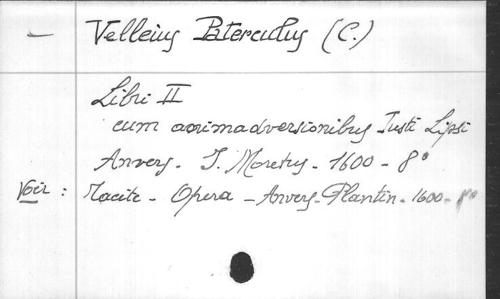 — Velleius Paterculus (C.)
Libri II
cum animadversionibus Justi Lipsi
Anvers - J. Moretus - 1600 - 8°
Voir : Tacite - Opera - Anvers - Plantin - 1600 - 8°